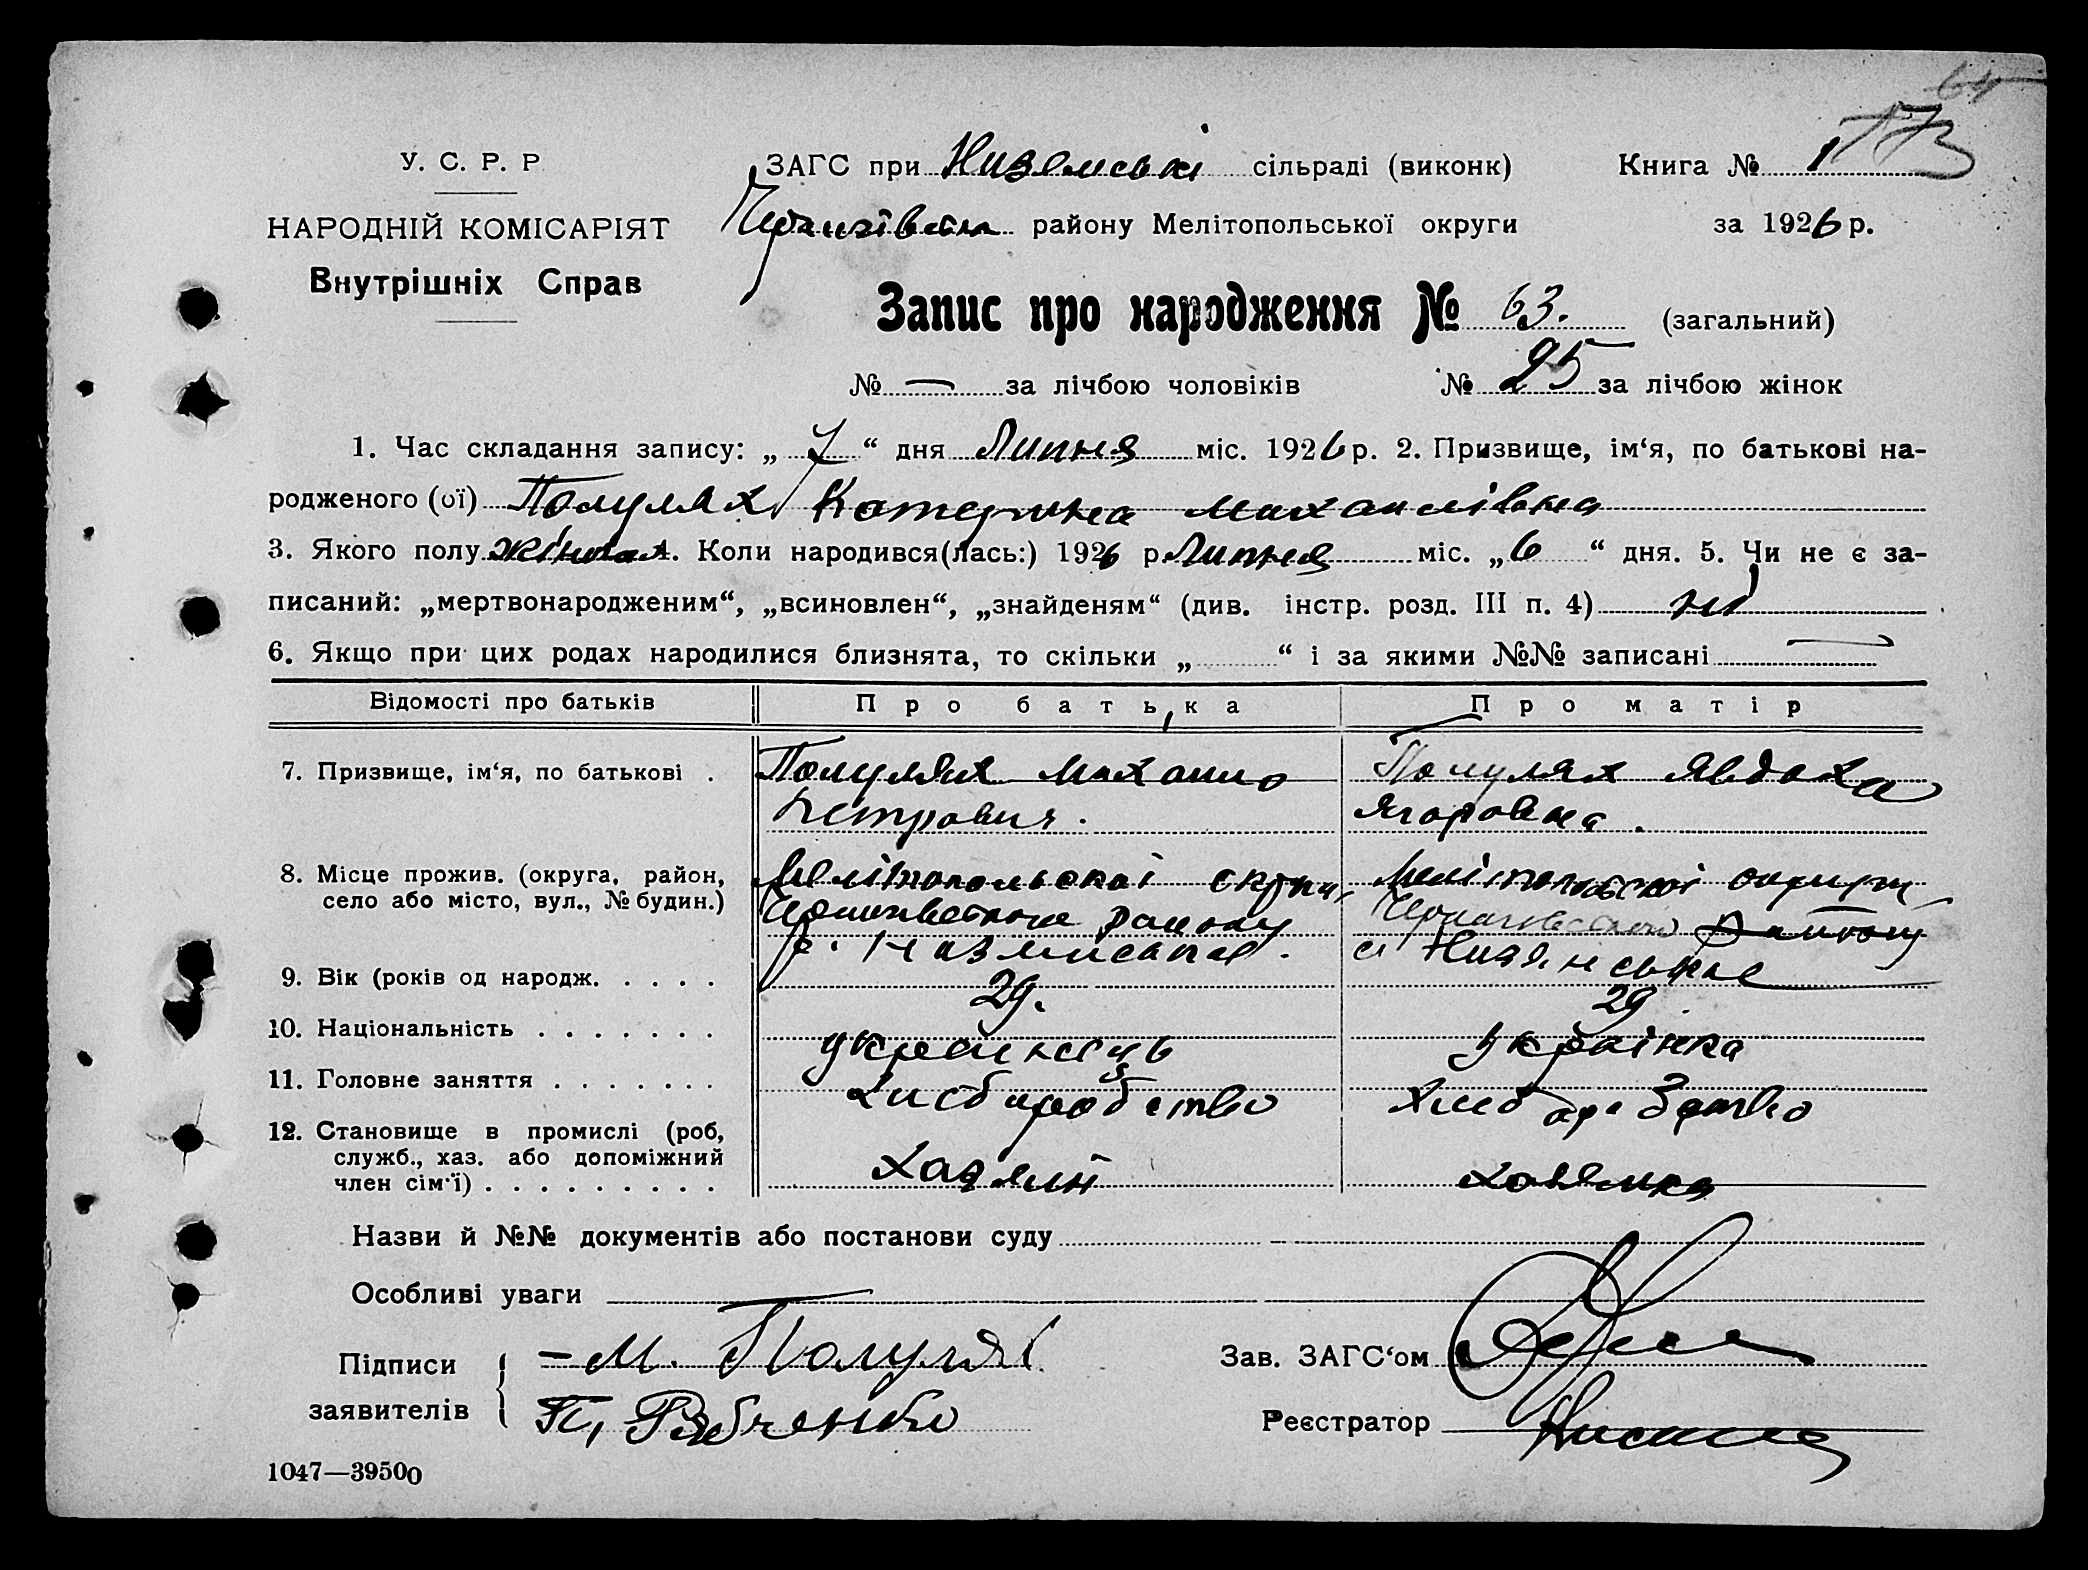 У. С. Р. Р
НАРОДНІЙ КОМІСАРІЯТ
Внутрішніх Справ
ЗАГС при сільраді (виконк) Книга № 1
району Мелітопольської округи за 1926 р.
Запис про народження № 63. (загальний)
№ — за лічбою чоловіків № 25 за лічбою жінок
1. Час складання запису: „ 7 “ дня Липня міс. 1926 р. 2. Призвище, ім‘я, по батькові на-
родженого (ої) Полулях Катерина Михайлівна
3. Якого полу жіноча 4. Коли народився(лась:) 1926 р. Липня міс. „ 6 “ дня. 5. Чи не є за-
писаний: „мертвонародженим“, „всиновлен“, „знайденям“ (див. інстр. розд. III п. 4) ні
6. Якщо при цих родах народилися близнята, то скільки „ “ і за якими №№ записані —
Відомості про батьків Про батька Про матір
7. Призвище, ім‘я, по батькові . Полулях Михайло Полулях Явдоха
Петрович. Ягоровна.
8. Місце прожив. (округа, район, Мелітопольскоі округи, Мелітопольскоі округи
село або місто, вул., № будин.) району району
9. Вік (років од народж. . . . . 29. 29
10. Національність . . . . . . . українець українка
11. Головне заняття . . . . . . . хлібаробство хлібаробство
12. Становище в промислі (роб,
служб., хаз. або допоміжний
член сім‘ї) . . . . . . . . . хазяин хозяика
Назви й №№ документів або постанови суду
Особливі уваги
Підписи – М. Полулях Зав. ЗАГС‘ом
заявителів П, Рябченко Реєстратор
1047—39500